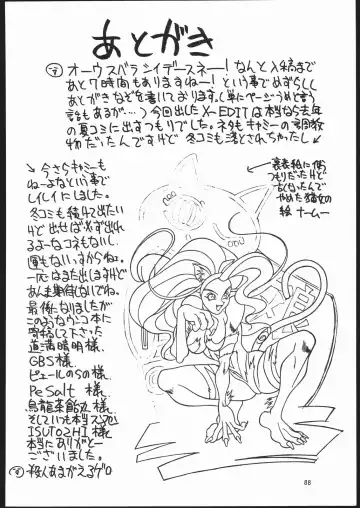 あとがき
オーウスバラシイデースネー!なんと入稿まで
あと7時間もありますねー!という事でめずらしく
あとがきなぞを書いております。(単にページうめと言う
話もあるが…)今回出したX-EDITは本当なら去年
の夏コミに出すつもりでした。ネタもキャミーの
物だったんですけど 冬コミも落とされちゃったし
↓今さらキャミーも
ねーよなという事で
シイレイにしました。
冬コミも続けて出たい
けど出せば必ず出れ
るよーなコネもないし
運もないっすからねぇ。
一応はまた出しますけど
あんま期待しないでね。
最后になりましたが
このようなウンコ本に
寄稿して下さった
道満晴明様、
GBS様、
ピュールのSの様、
PeSalt様、
烏龍茶館
そしていつも本当スマヌ
ISUTOSHI様、
本当にありがとー
ございました。
裏表紙に使
つもりだったけど
よくなったんで
やめた猫女の
絵 ナームー
殺人あまがえるゲロ
88